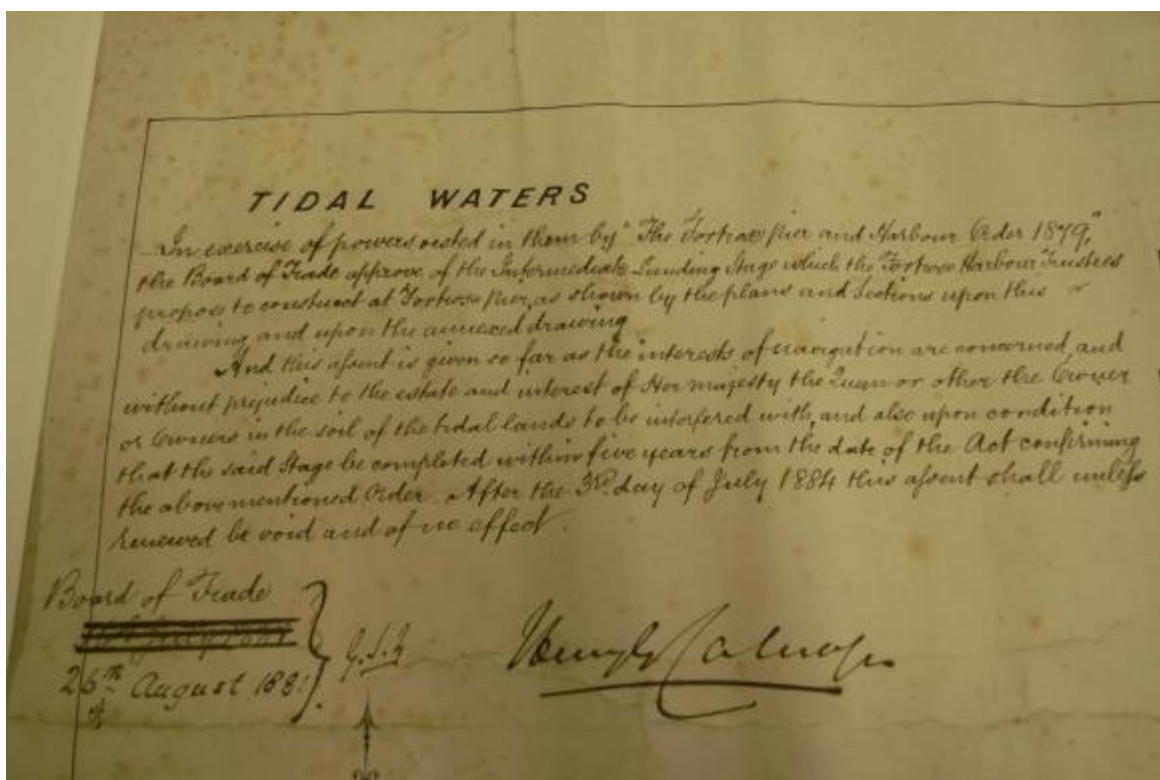 TIDAL WATERS
In exercise of powers vested in them by "The Fortrose Pier and Harbour Order 1879,"
the Board of Trade approve of the Intermediate Landing Stage which the Fortrose Harbour Trustees
propose to construct at Fortrose Pier, as shown by the plans and sections upon this
drawing and upon the annexed drawing
And this assent is given so far as the interests of navigation are concerned, and
without prejudice to the estate and interest of Her Majesty the Queen or other the Owner
or Owners in the soil of the tidal lands to be interfered with, and also upon condition
that the said Stage be completed within five years from the date of the Act confirming
the above mentioned Order. After the 3rd day of July 1884 this assent shall unless
renewed be void and of no effect.
Board of Trade
26th August 1881